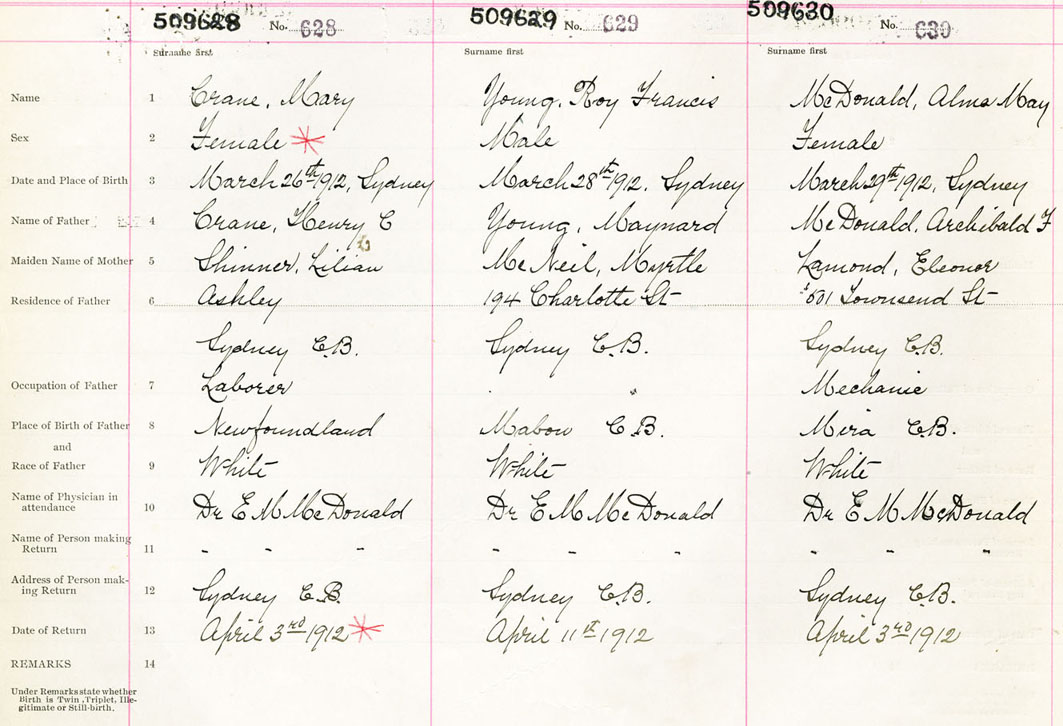 509628 No. 628 509629 No. 629 509630 No. 630
Surname first Surname first Surname first
Name 1 Crane, Mary Young, Roy Francis McDonald, Alma May
Sex 2 Female Male Female
Date and Place of Birth 3 March 26th 1912, Sydney March 28th 1912, Sydney March 29th 1912, Sydney
Name of Father 4 Crane, Henry C Young, Maynard McDonald, Archibald F
Maiden Name of Mother 5 Shinner, Lilian McNeil, Myrtle Lamond, Eleonor
Residence of Father 6 Ashley 194 Charlotte St Townsend St
Sydney C.B. Sydney C.B. Sydney C.B.
Occupation of Father 7 Laborer " Mechanic
Place of Birth of Father 8 Newfoundland Mabou C.B. Mira C.B.
and
Race of Father 9 White White White
Name of Physician in
attendance 10 Dr E M McDonald Dr E M McDonald Dr E M McDonald
Name of Person making
Return 11 " " " " " " " " "
Address of Person mak-
ing Return 12 Sydney C.B. Sydney C.B. Sydney C.B.
Date of Return 13 April 3rd 1912 April 11th 1912 April 3rd 1912
REMARKS 14
Under Remarks state whether
Birth is Twin, Triplet, Ille-
gitimate or Still-birth.